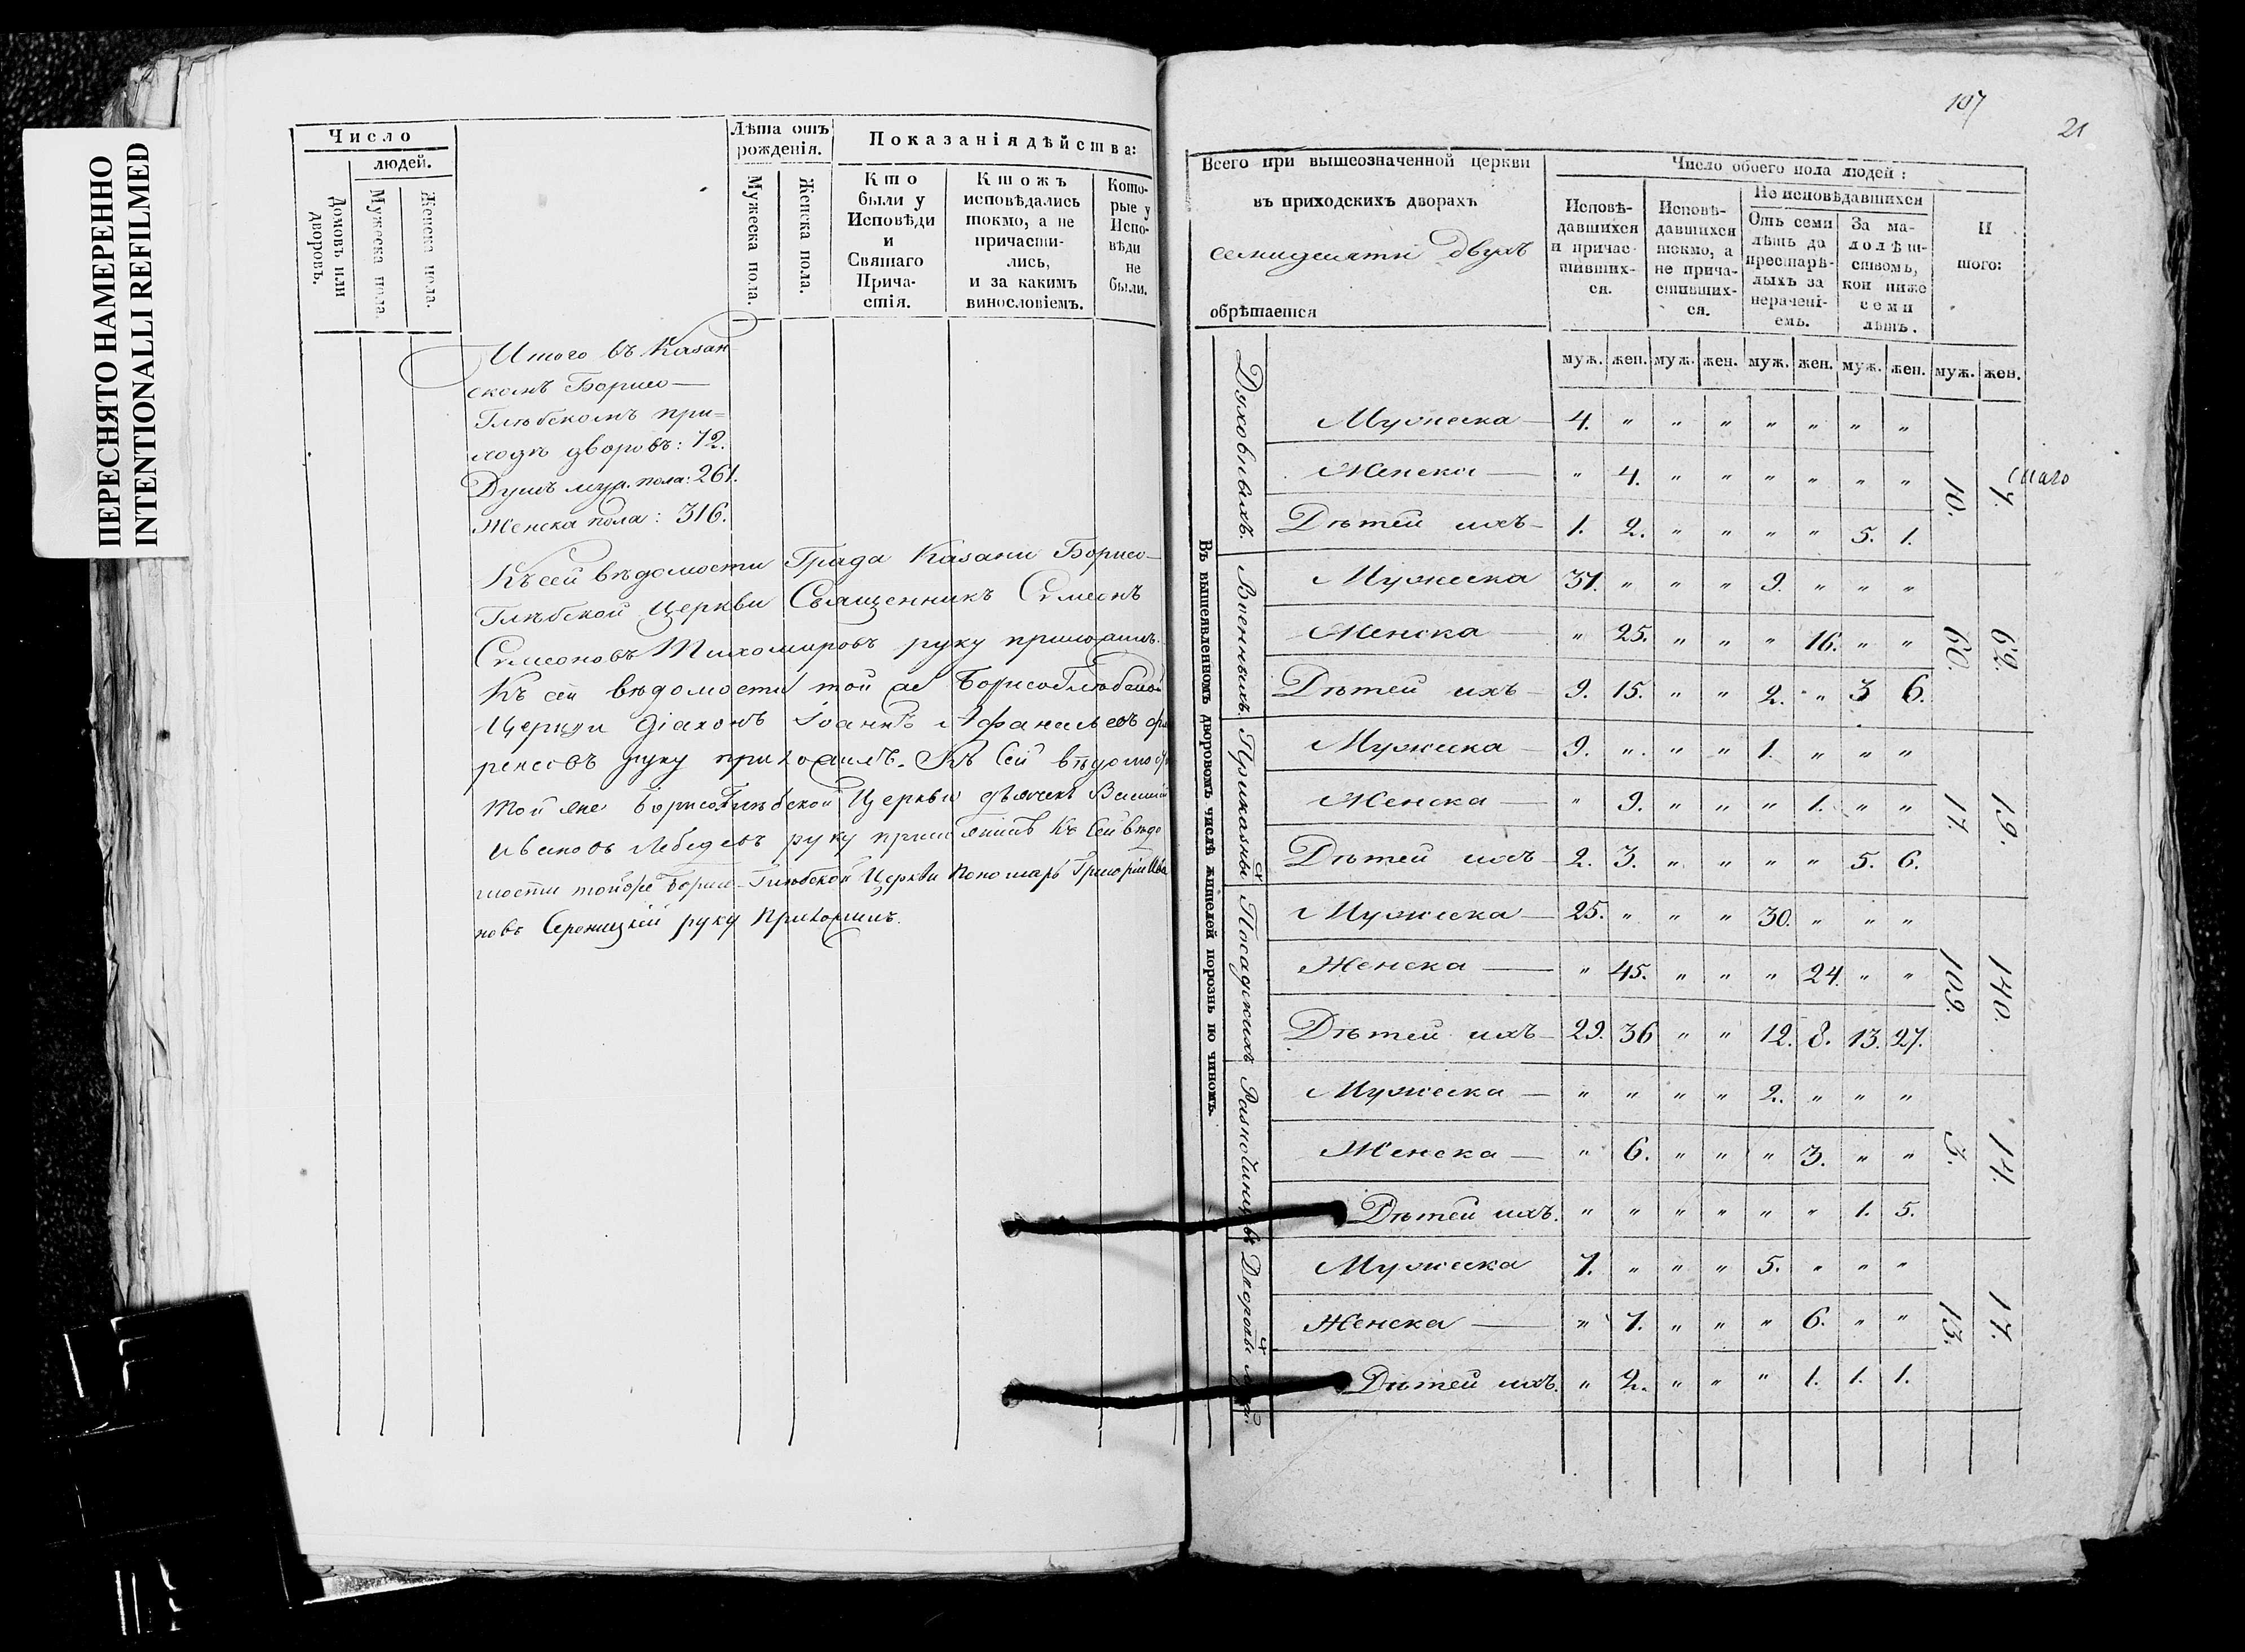 ПЕРЕСНЯТО НАМЕРЕННО
INTENTIONALLI REFILMED
Число
людей.
Домовъ или дворовъ.
Мужеска пола
Женска пола.
Лѣта отъ рожденія.
Мужеска пола.
Женска пола.
Показанія дѣйства:
Кто были у Исповѣди и Святаго Прича-стія.
Ктожъ исповѣдались токмо, а не причасти-лись, и за какимъ винословіемъ.
Кото-рые у Испо-вѣди не были.
Итого въ Казан
скомъ Борисо—
Глѣбскомъ при=
ходѣ дворовъ: 72.
Душъ муж. пола: 261.
Женска пола: 316.
Къ сей вѣдомости Града Казани Борисо—
Глѣбской Церкви Священникъ Сѵмеонъ
Сѵмеоновъ Тихомировъ руку приложилъ.
Къ сей вѣдомости той же Борисоглѣбской
Церкви Діаконъ Іоаннъ Афанасьевъ
руку приложилъ. Къ сей вѣдомости
той же Борисоглѣбской Церкви дьячекъ Василий
Ивановъ Лебедевъ руку приложилъ Къ сей вѣдо
мости тойже Борисо-Глѣбской Церкви Пономарь Григорій Ива
новъ руку приложилъ.
107
21
Всего при вышеозначенной церкви
въ приходскихъ дворахъ
семидесяти двухъ
обрѣтается
Число обоего пола людей:
Исповѣ-давшихся и причас-тивших-ся.
Исповѣ-давшихся токмо, а не прича-стивших-ся.
Не исповѣдавшихся
Отъ семи лѣтъ до престарѣ-лыхъ за нерачені-емъ.
За ма-лолѣт-ствомъ, кои ниже семи лѣтъ.
И того:
муж. жен. муж. жен. муж. жен. муж. жен. муж. жен.
Въ вышеявленномъ дворовомъ числѣ жителей порознь по чиномъ.
Духовныхъ.
Мужеска 4. " " " " " " "
Женска " 4. " " " " " "
Дѣтей ихъ 1. 2. " " " " 5. 1.
10. 7.
Военныхъ.
Мужеска 37. " " " 9. " " "
Женска " 25. " " " 16. " "
Дѣтей ихъ 9. 15. " " 2. " 3 6.
60. 62.
Приказных
Мужеска 9. " " " 1. " " "
Женска " 9. " " " 1. " "
Дѣтей ихъ 2. 3. " " " " 5. 6.
17. 19.
Посадскихъ
Мужеска 25. " " " 30. " " "
Женска " 45. " " " 24. " "
Дѣтей ихъ 29. 36 " " 12. 8. 13. 27.
109. 140.
Разночинцовъ
Мужеска " " " " 2. " " "
Женска " 6. " " " 3. " "
Дѣтей ихъ. " " " " " " 1. 5.
3. 14.
Мужеска 7. " " " 5. " " "
Женска " 7. " " " 6. " "
Дѣтей ихъ. " 2. " " " 1. 1. 1.
13. 17.